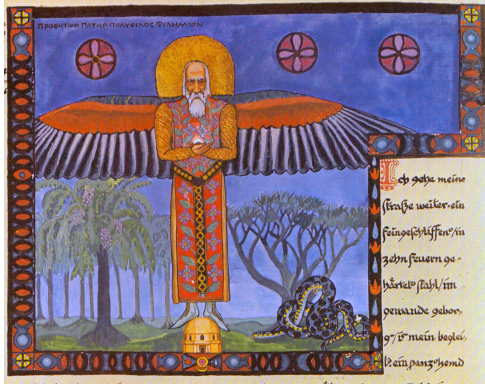 ΠΡΟΦΗΤΩΝ ΠΑΤΗΡ ΠΟΛΥΦΙΛΟΣ ΦΙΛΗΜΩΝ
Ich gehe meine
straße weiter·ein
feingeschliffen'/in
zehn feuern ge-
härtet' stahl/im
gewande gebor,
mein beglei,